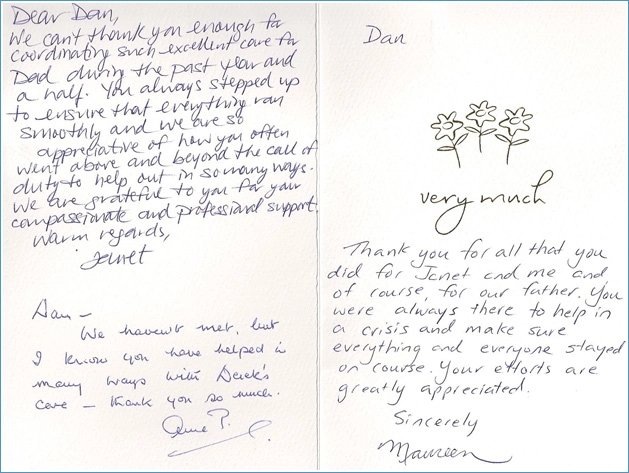 Dear Dan,
We can't thank you enough for
coordinating such excellent care for
Dad during the past year and
a half. You always stepped up
to ensure that everything ran
smoothly and we are so
appreciative of how you often
went above and beyond the call of
duty to help out in so many ways.
We are grateful to you for your
compassionate and professional support.
Warm regards,
Janet
Dan –
We haven't met, but
I know you have helped in
many ways with Derek's
care – thank you so much.
Anne P.
Dan
very much
Thank you for all that you
did for Janet and me and
of course, for our father. You
were always there to help in
a crisis and make sure
everything and everyone stayed
on course. Your efforts are
greatly appreciated.
Sincerely
Maureen